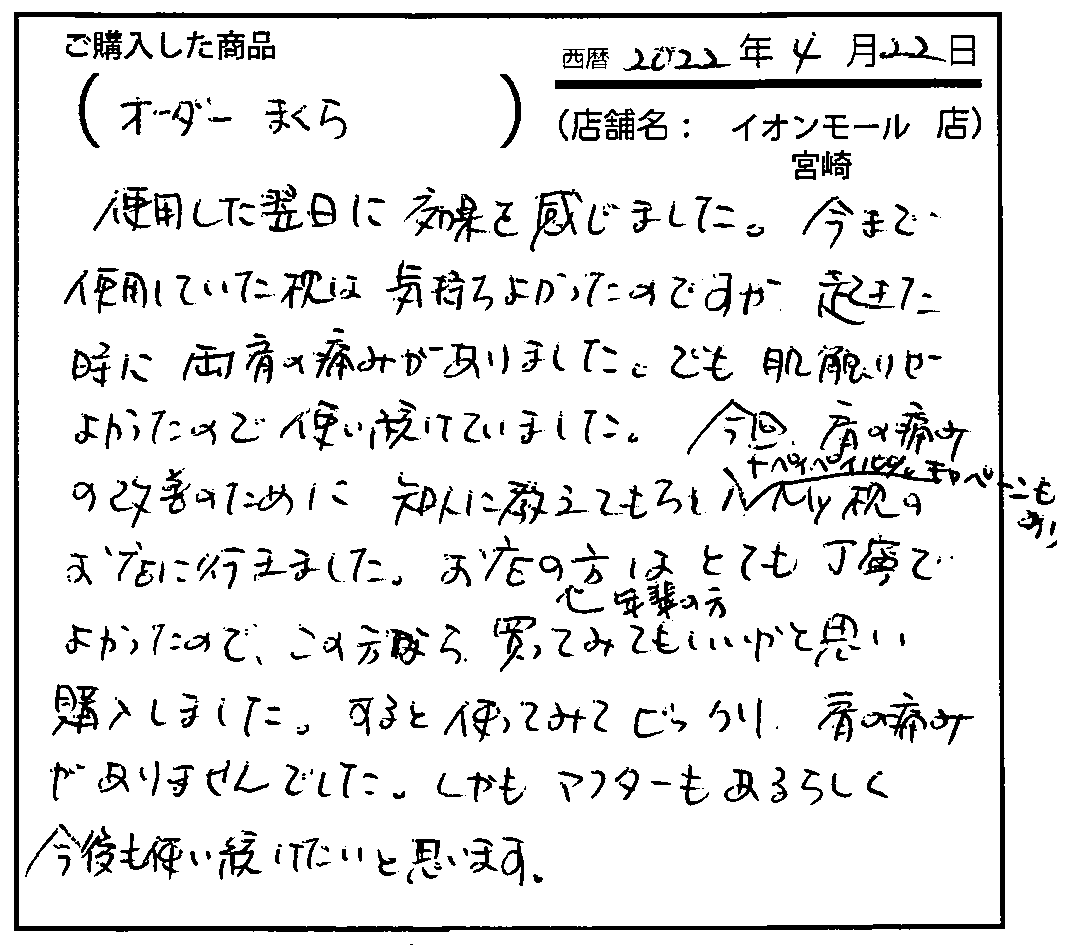 ご購入した商品
西暦 2022年4月22日
(オーダー まくら)
(店舗名: イオンモール 店)
宮崎
使用した翌日に効果を感じました。今まで
使用していた枕は気持ちよかったのですが 起きた
時に両肩の痛みがありました。でも肌触りが
よかったので使い続けていました。今回、肩の痛み
キャンペーンも
あり
の改善のために知人に教えてもらい 枕の
お店に行きました。お店の方はとても丁寧で
年輩の方
よかったので、この方なら買ってみてもいいかと思い
購入しました。すると使ってみてびっくり 肩の痛み
がありませんでした。しかもアフターもあるらしく
今後も使い続けたいと思います。